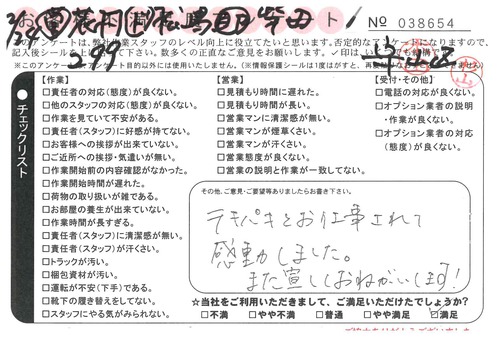 № 038654
のアンケートは、弊社作業スタッフのレベル向上に役立てたいと思います。否定的なアンケートになりますので、
※このアンケートはアンケート目的以外には使用いたしません。
チェックリスト
【作業】
□責任者の対応(態度)が良くない。
□他のスタッフの対応(態度)が良くない。
□作業を見ていて不安がある。
□責任者(スタッフ)に好感が持てない。
□お客様への挨拶が出来ていない。
□ご近所への挨拶・気遣いが無い。
□作業開始前の内容確認がなかった。
□作業開始時間が遅れた。
□荷物の取り扱いが雑である。
□お部屋の養生が出来ていない。
□作業時間が長すぎる。
□責任者(スタッフ)に清潔感が無い。
□責任者(スタッフ)が汗くさい。
□トラックが汚い。
□梱包資材が汚い。
□運転が不安(下手)である。
□靴下の履き替えをしてない。
□スタッフにやる気がみられない。
【営業】
□見積もり時間に遅れた。
□見積もり時間が長い。
□営業マンに清潔感が無い。
□営業マンが煙草くさい。
□営業マンが汗くさい。
□営業態度が良くない。
□営業の説明と作業が一致してない。
【受付・その他】
□電話の対応が良くない。
□オプション業者の説明
・作業が良くない。
□オプション業者の対応
(態度)が良くない。
その他、ご意見・ご要望等ありましたらお書き下さい。
テキパキとお仕事されて
感動しました。
また宜しくおねがいします!
☆当社をご利用いただきまして、ご満足いただけたでしょうか?
□不満 □やや不満 □普通 □やや満足 ☑満足